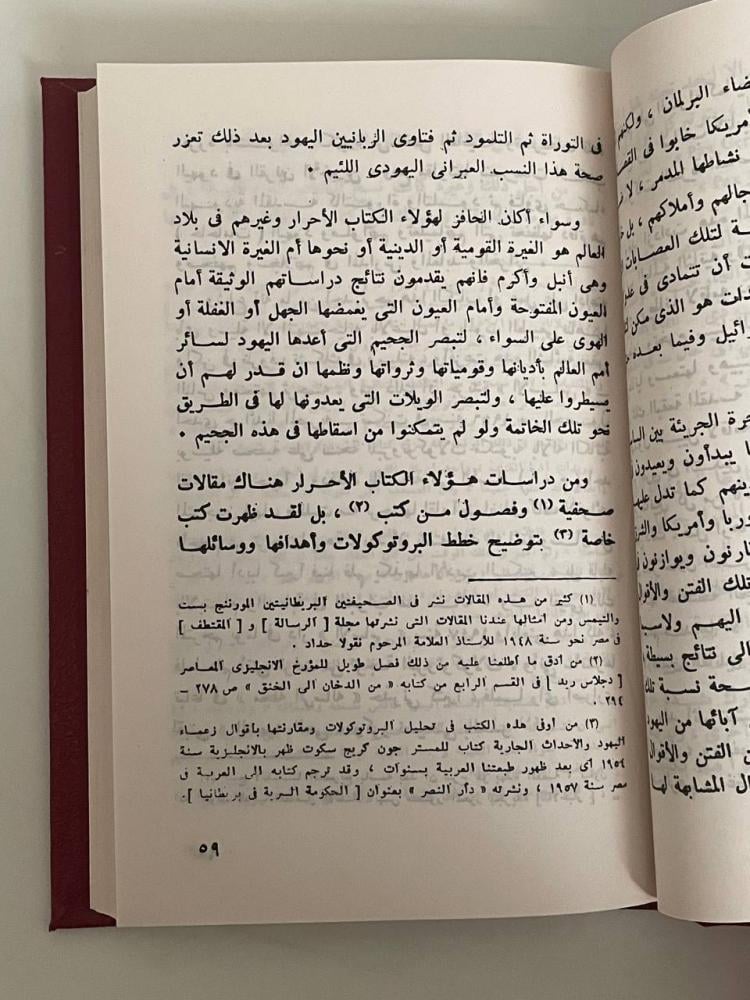 فى التوراة ثم التلمود ثم فتاوى الربانيين اليهود بعد ذلك تعزر
صحة هذا النسب العبرانى اليهودى اللئيم .
وسواء أكان الحافز لهؤلاء الكتاب الأحرار وغيرهم فى بلاد
العالم هو الغيرة القومية أو الدينية أو نحوها أم الغيرة الانسانية
وهى أنبل وأكرم فانهم يقدمون نتائج دراساتهم الوثيقة أمام
العيون المفتوحة وأمام العيون التى يغمضها الجهل أو الغفلة أو
الهوى على السواء ، لتبصر الجحيم التى أعدها اليهود لسائر
أمم العالم بأديانها وقومياتها وثرواتها ونظمها ان قدر لهم أن
يسيطروا عليها ، ولتبصر الويلات التى يعدونها لها فى الطريق
نحو تلك الخاتمة ولو لم يتمكنوا من اسقاطها فى هذه الجحيم .
ومن دراسات هؤلاء الكتاب الأحرار هناك مقالات
صحفية (١) وفصول من كتب (٢) ، بل لقد ظهرت كتب
خاصة (٣) بتوضيح خطط البروتوكولات وأهدافها ووسائلها
(١) كثير من هذه المقالات نشر فى الصحيفتين البريطانيتين المورننج بست
والتيمس ومن أمثالها عندنا المقالات التى نشرتها مجلة [ الرسالة ] و [ المقتطف ]
فى مصر نحو سنة ١٩٤٨ للأستاذ العلامة المرحوم نقولا حداد .
(٢) من أدق ما اطلعنا عليه من ذلك فصل طويل للمؤرخ الانجليزى المعاصر
[ دجلاس ريد ] فى القسم الرابع من كتابه « من الدخان الى الخنق » ص ٢٧٨ -
٢٩٤ .
(٣) من أوفى هذه الكتب فى تحليل البروتوكولات ومقارنتها بأقوال زعماء
اليهود والأحداث الجارية كتاب للمستر جون كريج سكوت ظهر بالانجليزية سنة
١٩٥٤ أى بعد ظهور طبعتنا العربية بسنوات ، وقد ترجم كتابه الى العربية فى
مصر سنة ١٩٥٧ ، ونشرته « دار النصر » بعنوان [ الحكومة السرية فى بريطانيا ].
٥٩
البرلمان ، ولكنهم
أمريكا خابوا فى
نشاطها المدمر ، لا
وأملاكهم ، بل
لتلك العصابات
أن تتمادى فى
هو الذى مكن
وفيما بعده
الجريئة بين
يبدأون ويعيدون
كما تدل عليه
وأمريكا
ويوازنون
تلك الفتن والأقوال
اليهم
الى نتائج بسيطة
صحة نسبة تلك
آبائها من اليهود
الفتن والأقوال
المشابهة لها